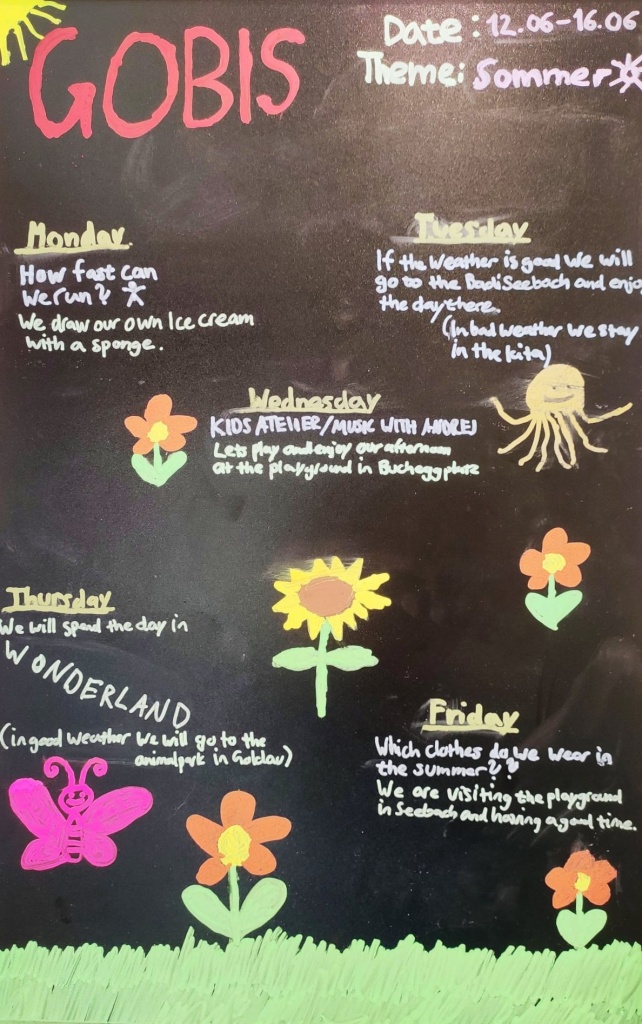 GOBIS
Date: 12.06-16.06
Theme: Sommer
Monday
How fast can
we run?
We draw our own Ice cream
with a sponge.
Tuesday
If the weather is good we will
go to the Badi Seebach and enjoy
the day there.
(In bad weather we stay
in the kita)
Wednesday
KIDS ATELIER/MUSIC WITH ANDREJ
Lets play and enjoy our afternoon
at the playground in Bucheggplatz
Thursday
We will spend the day in
WONDERLAND
(in good weather we will go to the
animalpark in Goldau)
Friday
Which clothes do we wear in
the summer??
We are visiting the playground
in Seebach and having a good time.